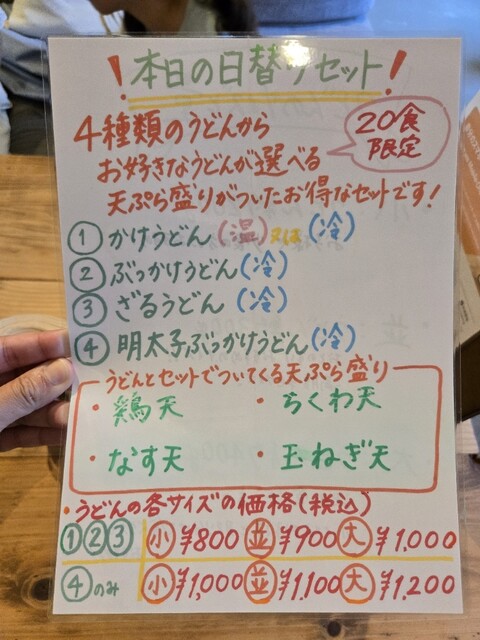 ！本日の日替りセット！
4種類のうどんから
お好きなうどんが選べる
天ぷら盛りがついたお得なセットです！
20食
限定
① かけうどん（温）又は（冷）
② ぶっかけうどん（冷）
③ ざるうどん（冷）
④ 明太子ぶっかけうどん（冷）
うどんとセットでついてくる天ぷら盛り
・鶏天 ・ちくわ天
・なす天 ・玉ねぎ天
・うどんの各サイズの価格（税込）
①②③ 小 ¥800 並 ¥900 大 ¥1,000
④のみ 小 ¥1,000 並 ¥1,100 大 ¥1,200